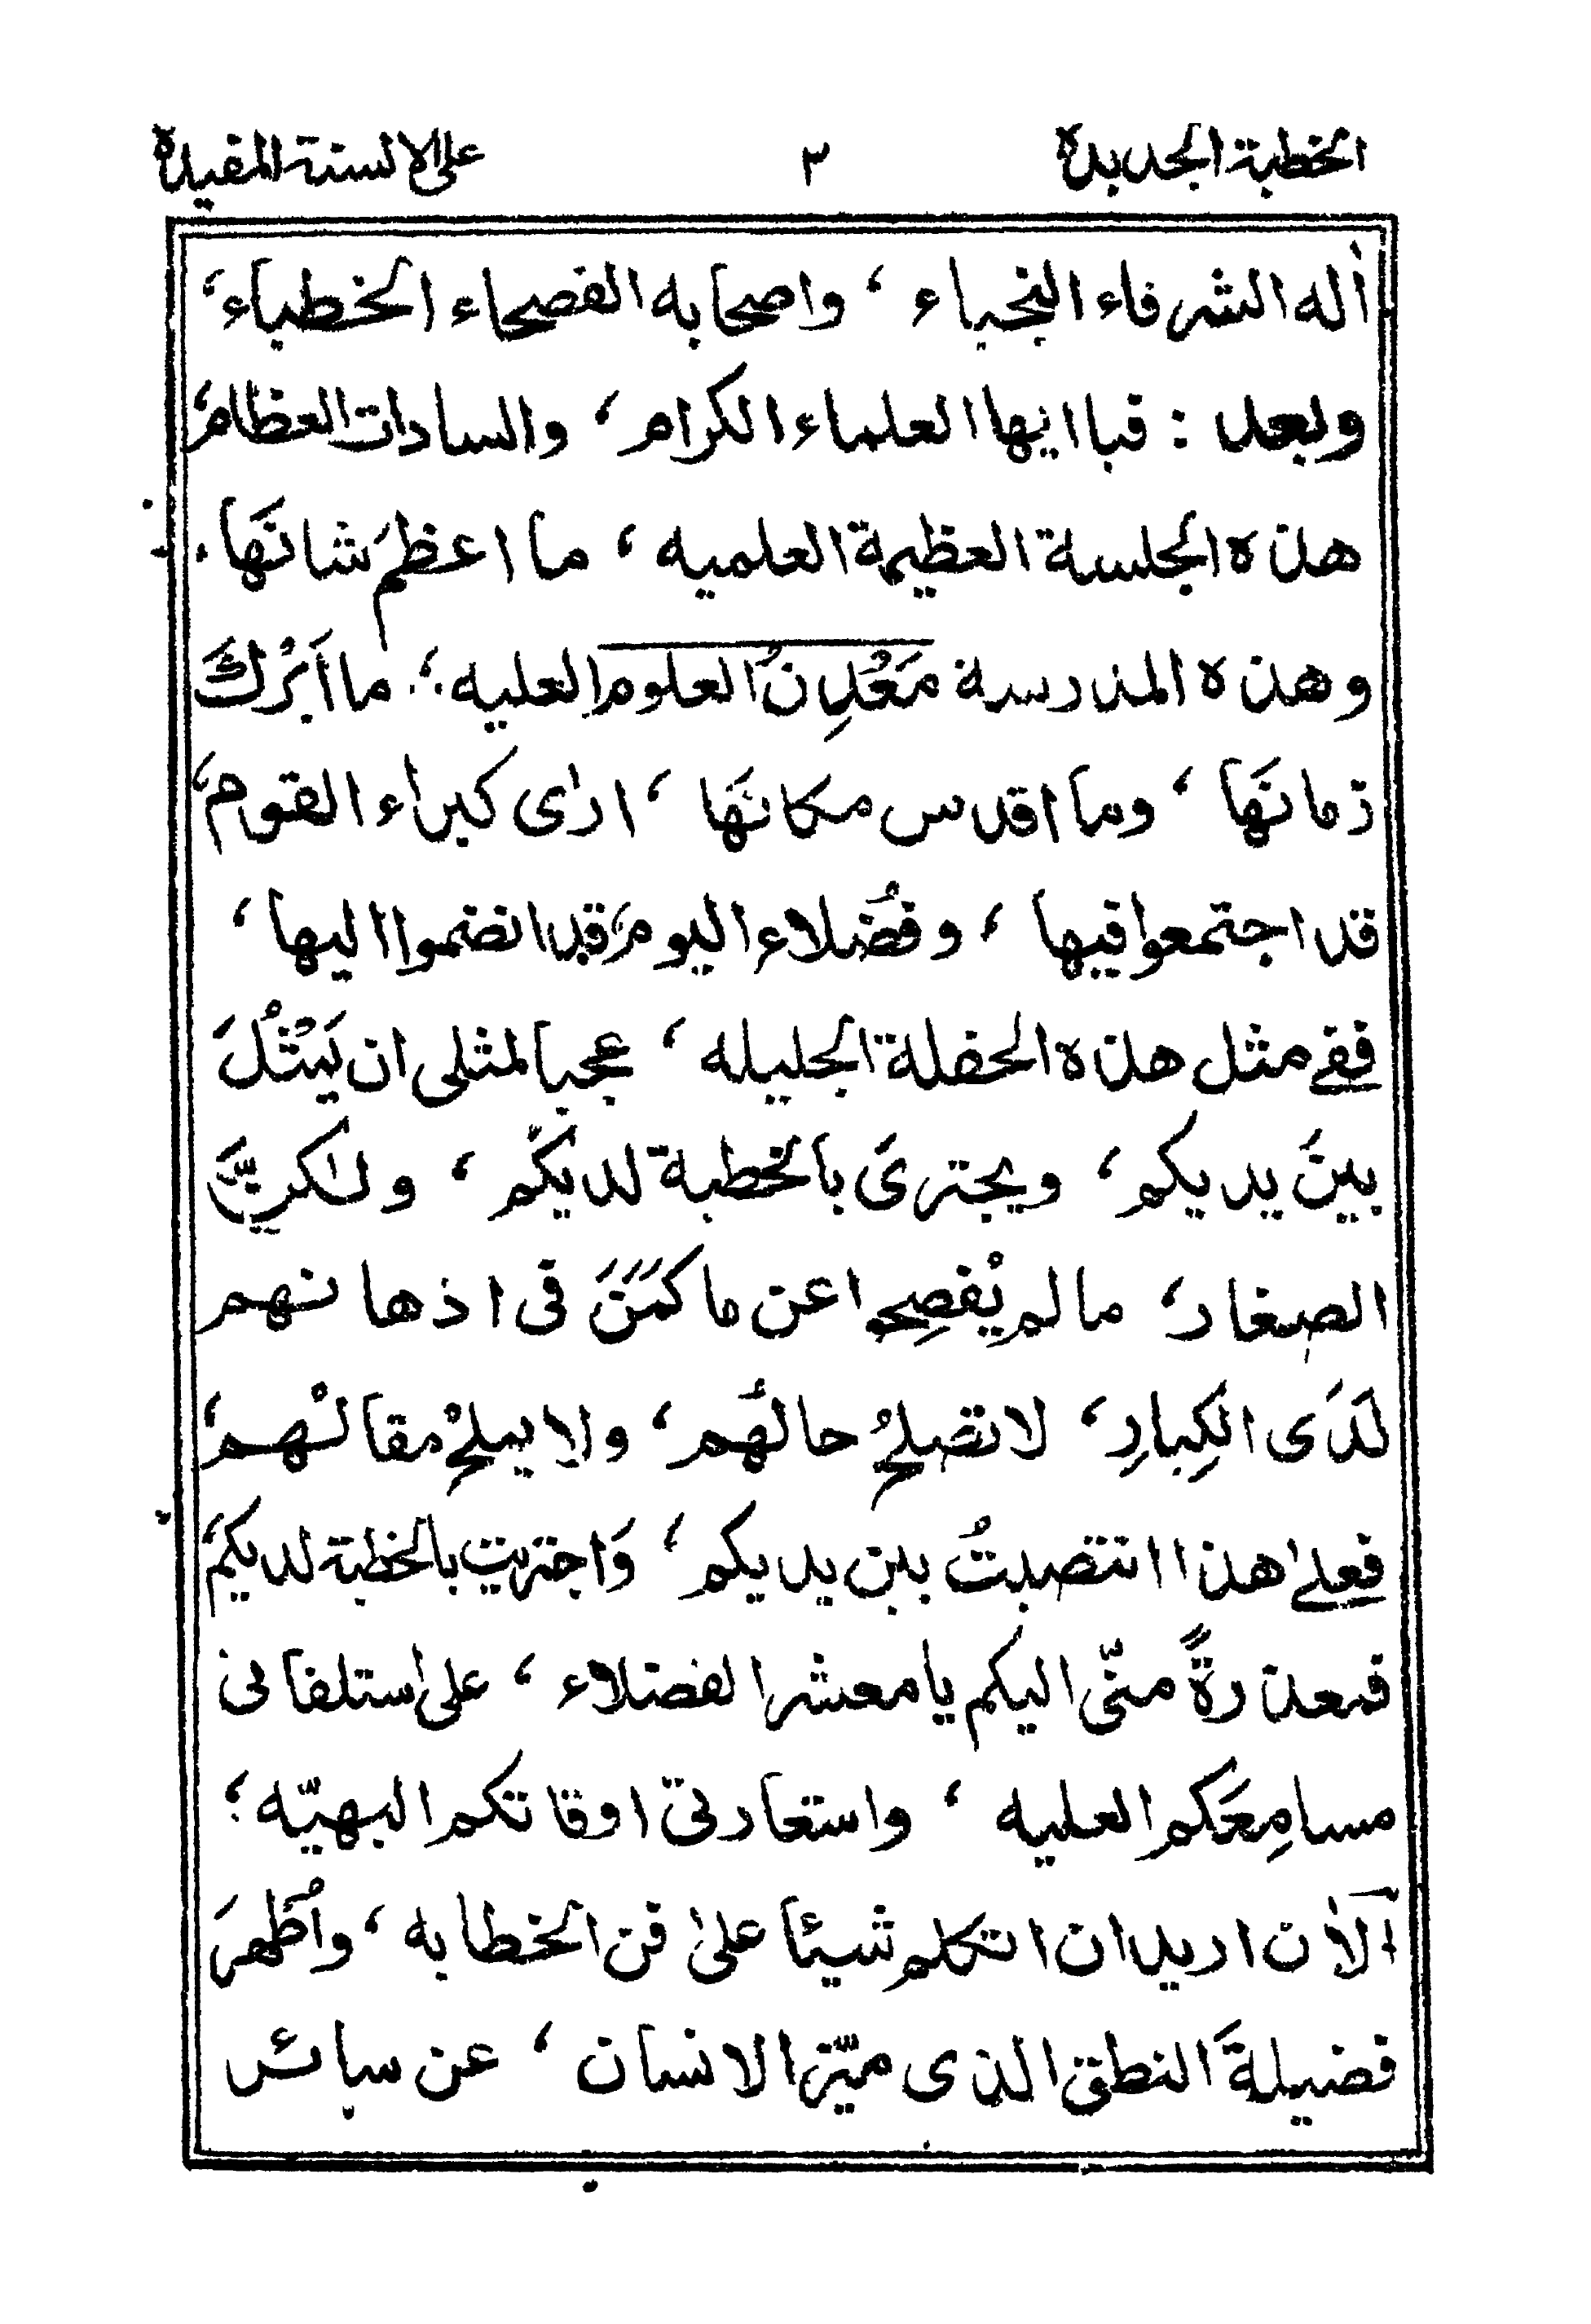 الخطبة الجديدة ٣ على الالسنة المفيدة
أله الشرفاء النجباء ، واصحابه الفصحاء الخطباء ،
وبعد : فيا ايها العلماء الكرام ، والسادات العظام ،
هذه الجلسة العظيمة العلميه ، ما اعظمَ شانَهَا .
وهذه المدرسة مَعْدِنُ العلوم العليه ، ما اَبْرَكَ
زمانَهَا ، وما اقدس مكانَهَا ، ارٰى كبراء القوم ،
قد اجتمعوا فيها ، وفُضلاء اليوم ، قد انضموا اليها ،
ففي مثل هذه الحفلة الجليله ، عجبا لمثلى ان يَمْثُلَ
بينَ يديكم ، ويجترىَ بالخطبة لديكُم ، ولٰكنَّ
الصغار ، مالم يُفصِحوا عن ما كمَنَ فى اذهانهم
لَدَى الكِبارِ ، لا تصلحُ حالُهُم ، ولا يملحُ مقالهُم ،
فعلىٰ هذا انتصبتُ بين يديكم ، وَاجتريت بالخطبة لديكم ،
فمعذرةً منّى اليكم يا معشر الفضلاء ، على استلفاتى
مسامِعَكم العليه ، واستعارتى اوقاتكم البهيّه ؛
آلاٰن اريد ان اتكلم شيئا علىٰ فن الخطابه ، واُظهرَ
فضيلةَ النطق الذى ميّز الانسان ، عن سائر